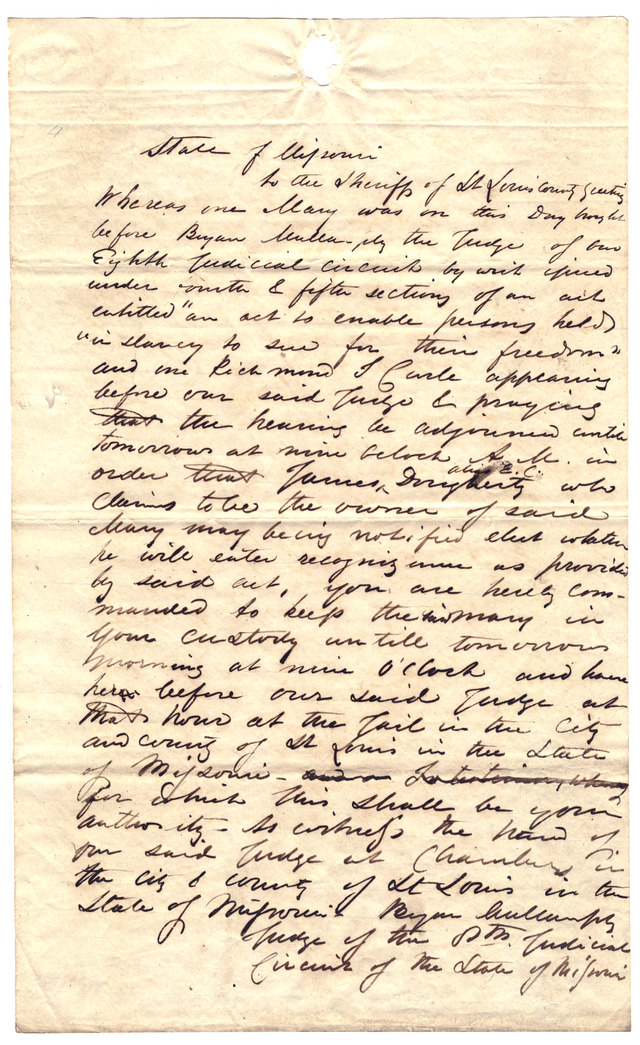 4
State of Missouri
to the Sheriff of St Louis County Greeting
Whereas one Mary was on this Day brought
before Bryan Mullanphy the Judge of our
Eighth Judicial circuit by writ issued
under fourth & fifth sections of an act
entitled "an act to enable persons held
"in slavery to sue for their freedom"
and one Richmond J Curle appearing
before our said Judge & praying
that the hearing be adjourned untill
tomorrow at nine oclock A. M. in
order that James Dougherty who
alias E. C.
claims to be the owner of said
Mary may being notified elect whether
he will enter recognizance as provided
by said act, You are hereby com-
manded to keep the said Mary in
your custody untill tomorrow
morning at nine O'Clock and have
her before our said Judge at
that hour at the Jail in the City
and county of St Louis in the State
of Missouri - and
for which this shall be your
authority - As witness the hand of
our said Judge at Chambers in
the City & county of St Louis in the
State of Missouri - Bryan Mullanphy
Judge of the 8th. Judicial
Circuit of the State of Missouri